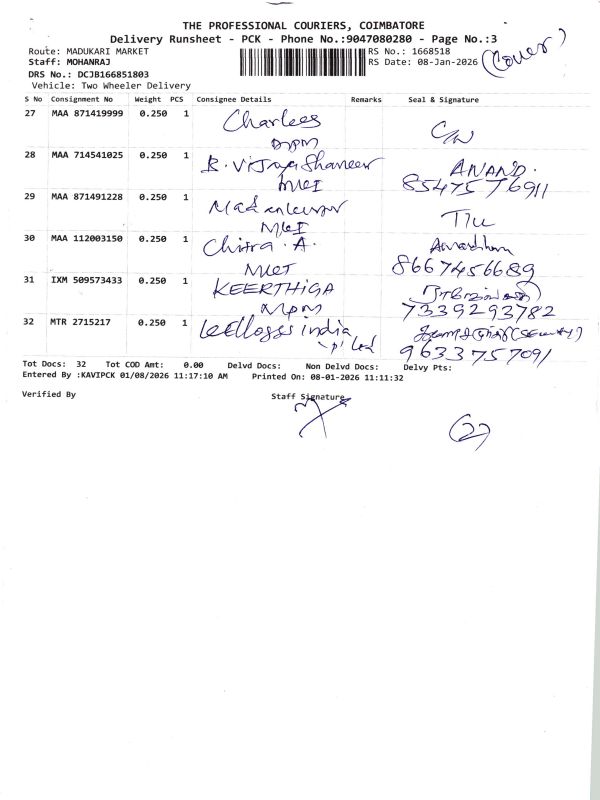 THE PROFESSIONAL COURIERS, COIMBATORE
Delivery Runsheet - PCK - Phone No.:9047080280 - Page No.:3
Route: MADUKARI MARKET RS No.: 1668518 (Cover)
Staff: MOHANRAJ RS Date: 08-Jan-2026
DRS No.: DCJB166851803
Vehicle: Two Wheeler Delivery
S No Consignment No Weight PCS Consignee Details Remarks Seal & Signature
27 MAA 871419999 0.250 1 Charlees
MPM
28 MAA 714541025 0.250 1 ANAND.
8547576911
29 MAA 871491228 0.250 1
30 MAA 112003150 0.250 1 Chitra . A.
8667456689
31 IXM 509573433 0.250 1 KEERTHIGA
MPM 7339293782
32 MTR 2715217 0.250 1 Kelloggs india
P. Ltd 9633757091
Tot Docs: 32 Tot COD Amt: 0.00 Delvd Docs: Non Delvd Docs: Delvy Pts:
Entered By :KAVIPCK 01/08/2026 11:17:10 AM Printed On: 08-01-2026 11:11:32
Verified By Staff Signature
27